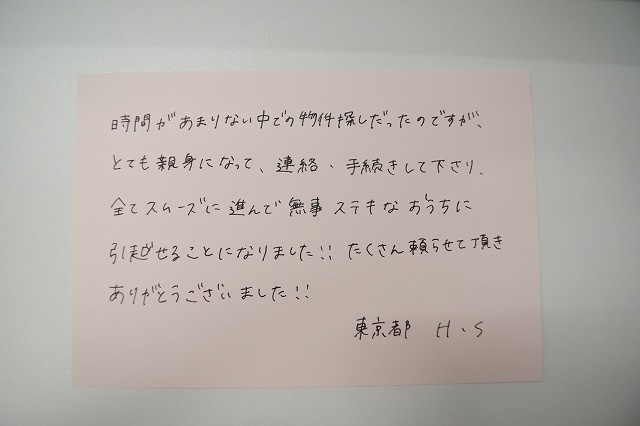 時間があまりない中での物件探しだったのですが、
とても親身になって、連絡・手続きして下さり、
全てスムーズに進んで無事ステキなおうちに
引越せることになりました!! たくさん頼らせて頂き
ありがとうございました!!
東京都 H・S